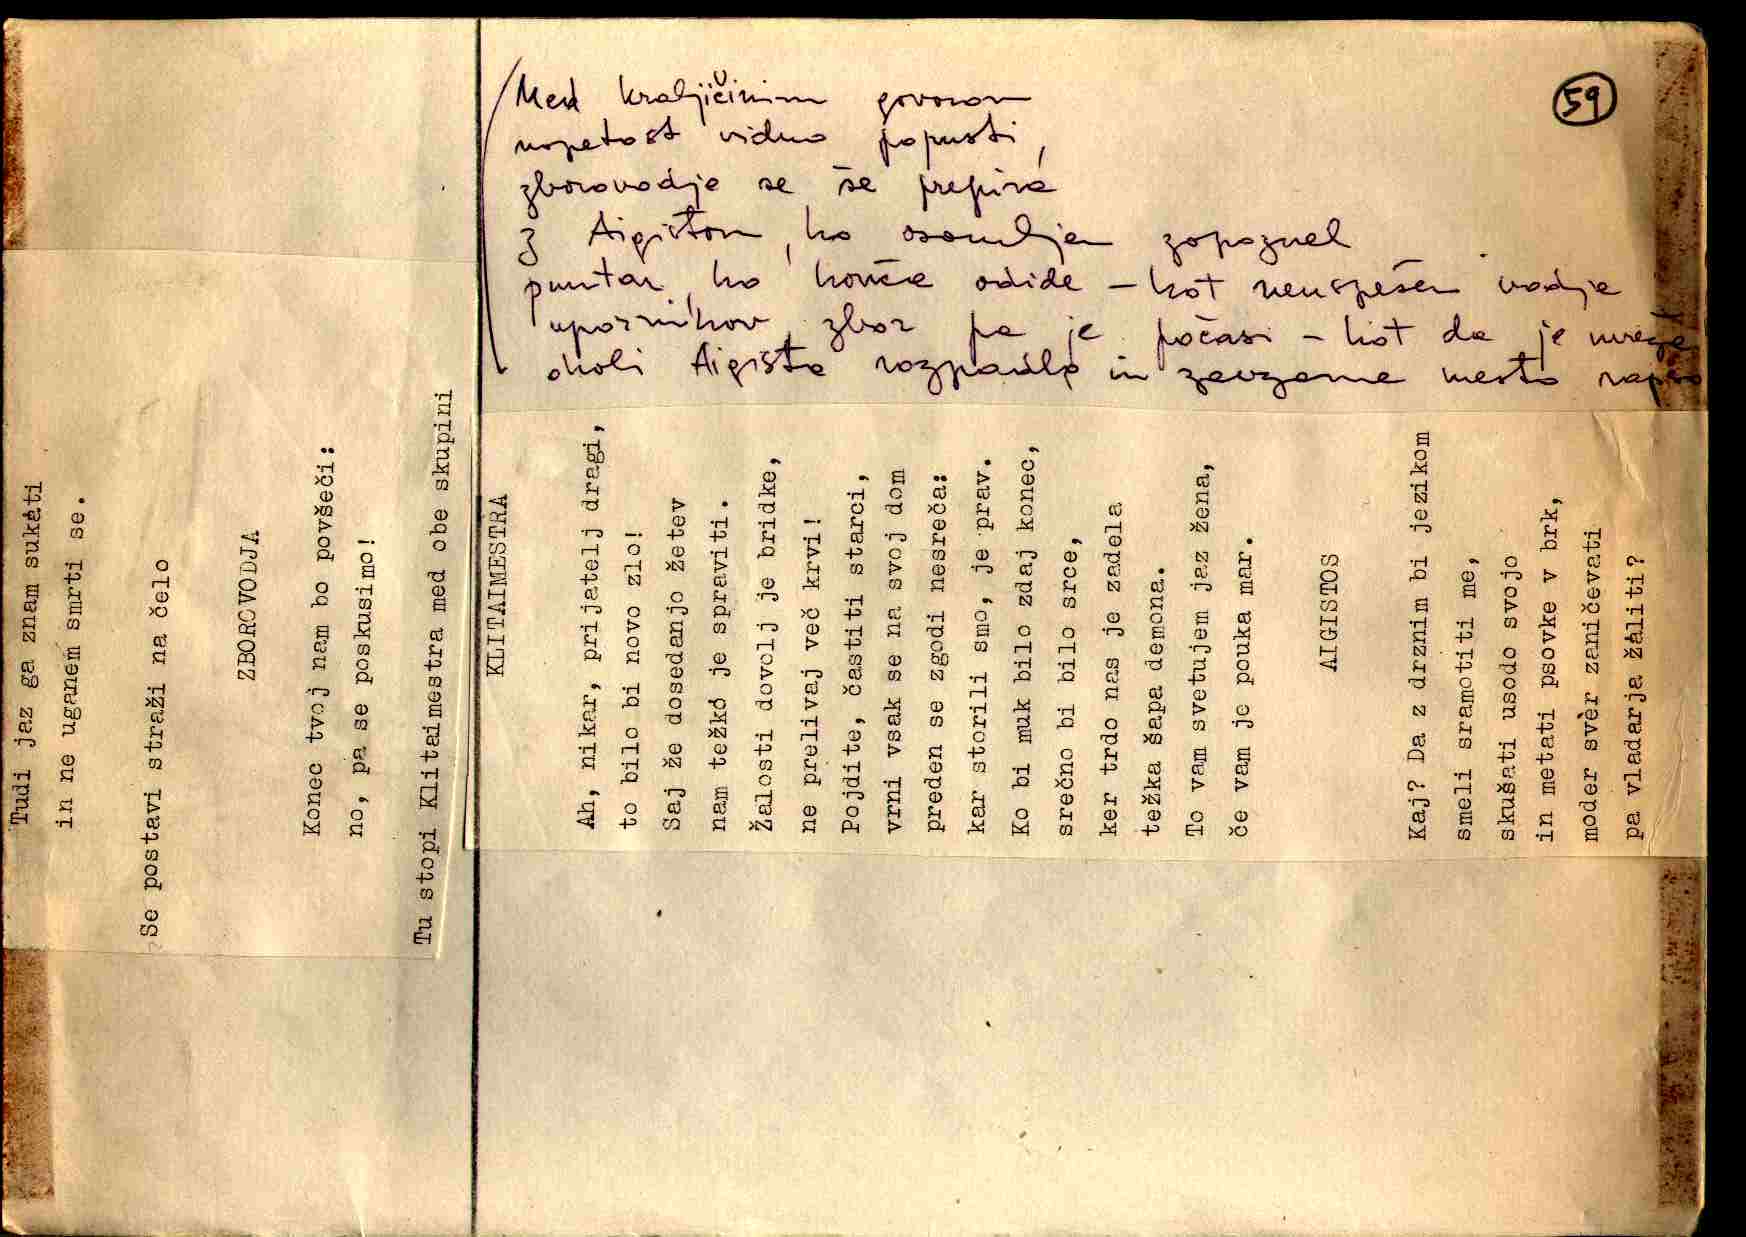 59
Med kraljičinim govorom
napetost vidno popusti,
zborovodje se še prepira
z Aigistom, ko osamljen zapoznel
puntar, ko konča odide – kot neuspešen vodja
upornikov, zbor pa je počasi – kot da je mreža
okoli Aigista razpadla in zavzame mesto
Tudi jaz ga znam sukati
in ne uganem smrti se.
Se postavi straži na čelo
ZBOROVODJA
Konec tvoj nam bo povšeči:
no, pa se poskusimo!
Tu stopi Klitaimestra med obe skupini
KLITAIMESTRA
Ah, nikar, prijatelj dragi,
to bilo bi novo zlo!
Saj že dosedanjo žetev
nam težkó je spraviti.
Žalosti dovolj je bridke,
ne prelivaj več krvi!
Pojdite, častiti starci,
vrni vsak se na svoj dom
preden se zgodi nesreča:
kar storili smo, je prav.
Ko bi muk bilo zdaj konec,
srečno bi bilo srce,
ker trdo nas je zadela
težka šapa demona.
To vam svetujem jaz žena,
če vam je pouka mar.
AIGISTOS
Kaj? Da z drznim bi jezikom
smeli sramotiti me,
skušati usodo svojo
in metati psovke v brk,
moder svèr zaničevati
pa vladarja žáliti?